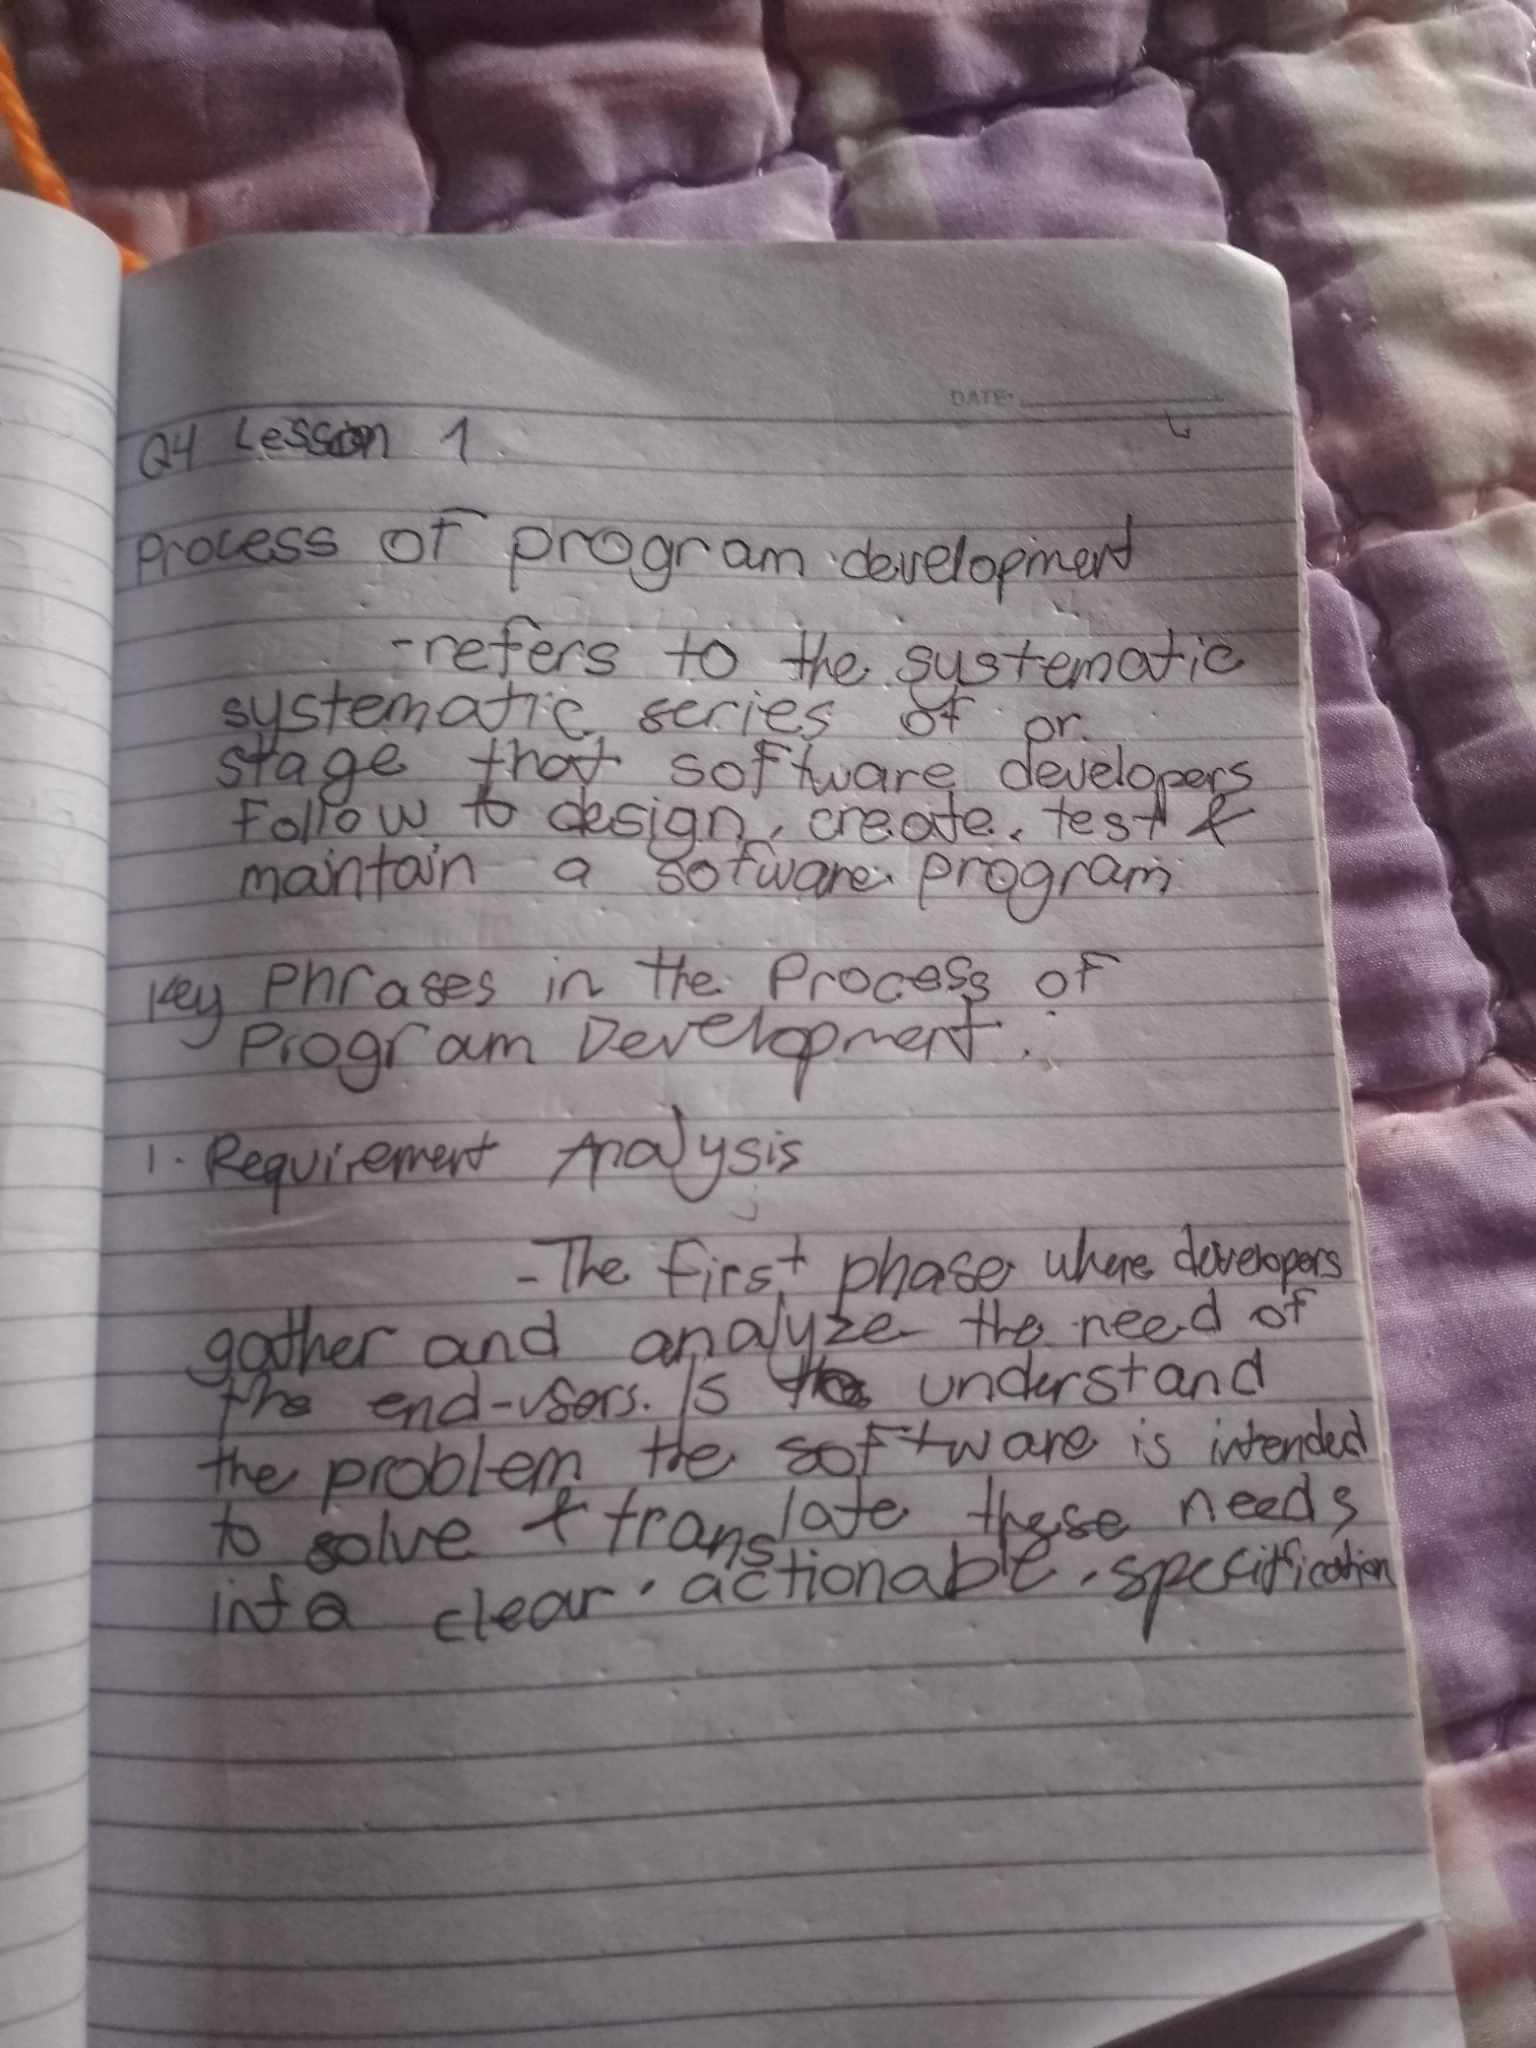 DATE:
Q4 Lesson 1
Process of program development
-refers to the systematic
systematic series of or
stage that software developers
Follow to design, create, test &
maintain a sofware program
Key Phrases in the Process of
Program Development:
1. Requirement Analysis
-The first phase where developers
gather and analyze the need of
the end-users. Is understand
the problem the software is intended
to solve & translate these needs
into clear, actionable, specification